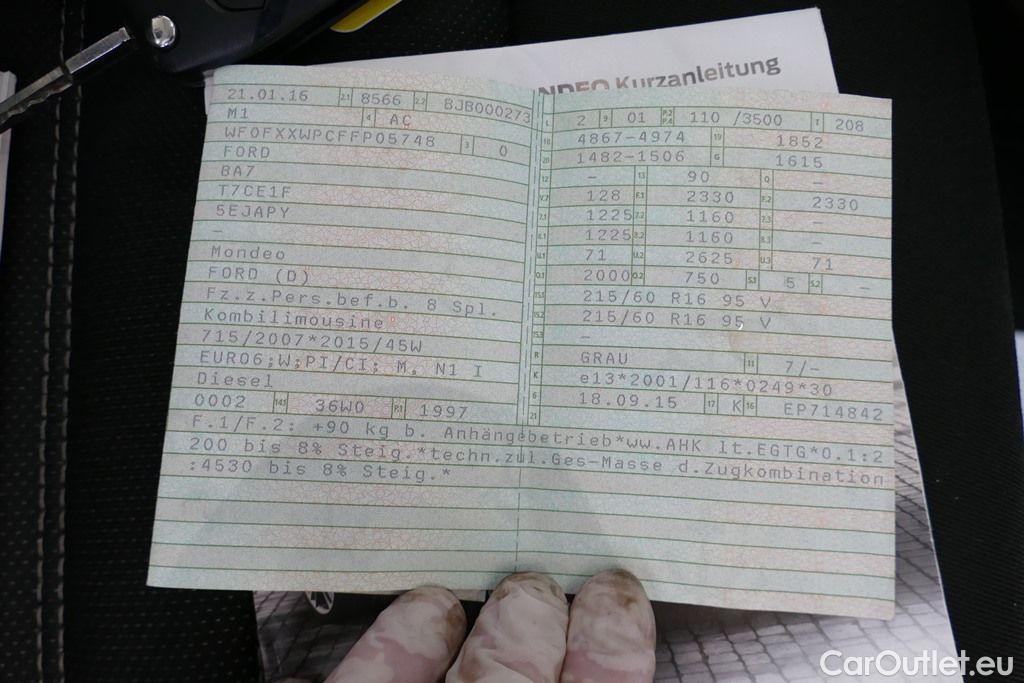 NDEO Kurzanleitung
21.01.16 2.1 8566 2.2 BJB000273
M1 4 AC
WF0FXXWPCFFP05748 3 0
FORD
BA7
T7CE1F
5EJAPY
–
Mondeo
FORD (D)
Fz.z.Pers.bef.b. 8 Spl.
Kombilimousine
715/2007*2015/45W
EURO6;W;PI/CI; M, N1 I
Diesel
0002 14.1 36W0 P.1 1997
L 2 9 01 P.2 P.4 110 /3500 T 208
18 4867-4974 19 1852
20 1482-1506 G 1615
12 – 13 90 Q –
V.7 128 F.1 2330 F.2 2330
7.1 1225 7.2 1160 7.3 –
8.1 1225 8.2 1160 8.3 –
U.1 71 U.2 2625 U.3 71
O.1 2000 O.2 750 S.1 5 S.2 –
15.1 215/60 R16 95 V
15.2 215/60 R16 95 V
15.3 –
R GRAU 11 7/–
K e13*2001/116*0249*30
6 18.09.15 17 K 16 EP714842
21
F.1/F.2: +90 kg b. Anhängebetrieb*ww.AHK lt.EGTG*O.1:2
200 bis 8% Steig.*techn.zul.Ges-Masse d.Zugkombination
:4530 bis 8% Steig.*
CarOutlet.eu